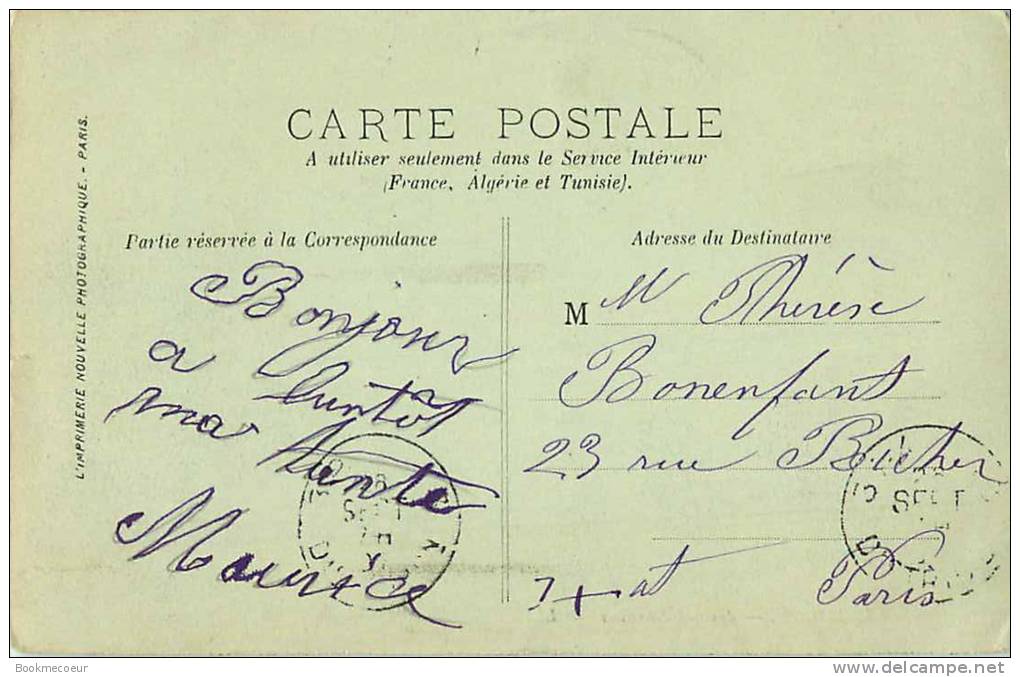 CARTE POSTALE
A utiliser seulement dans le Service Intérieur
(France, Algérie et Tunisie).
L'IMPRIMERIE NOUVELLE PHOTOGRAPHIQUE. - PARIS.
Partie réservée à la Correspondance
Bonjour
a
ma tente
Maurice
Adresse du Destinataire
M Thérèse
Bonenfant
23 rue
Paris
SEPT
Bookmecoeur
http://www.delcampe.net